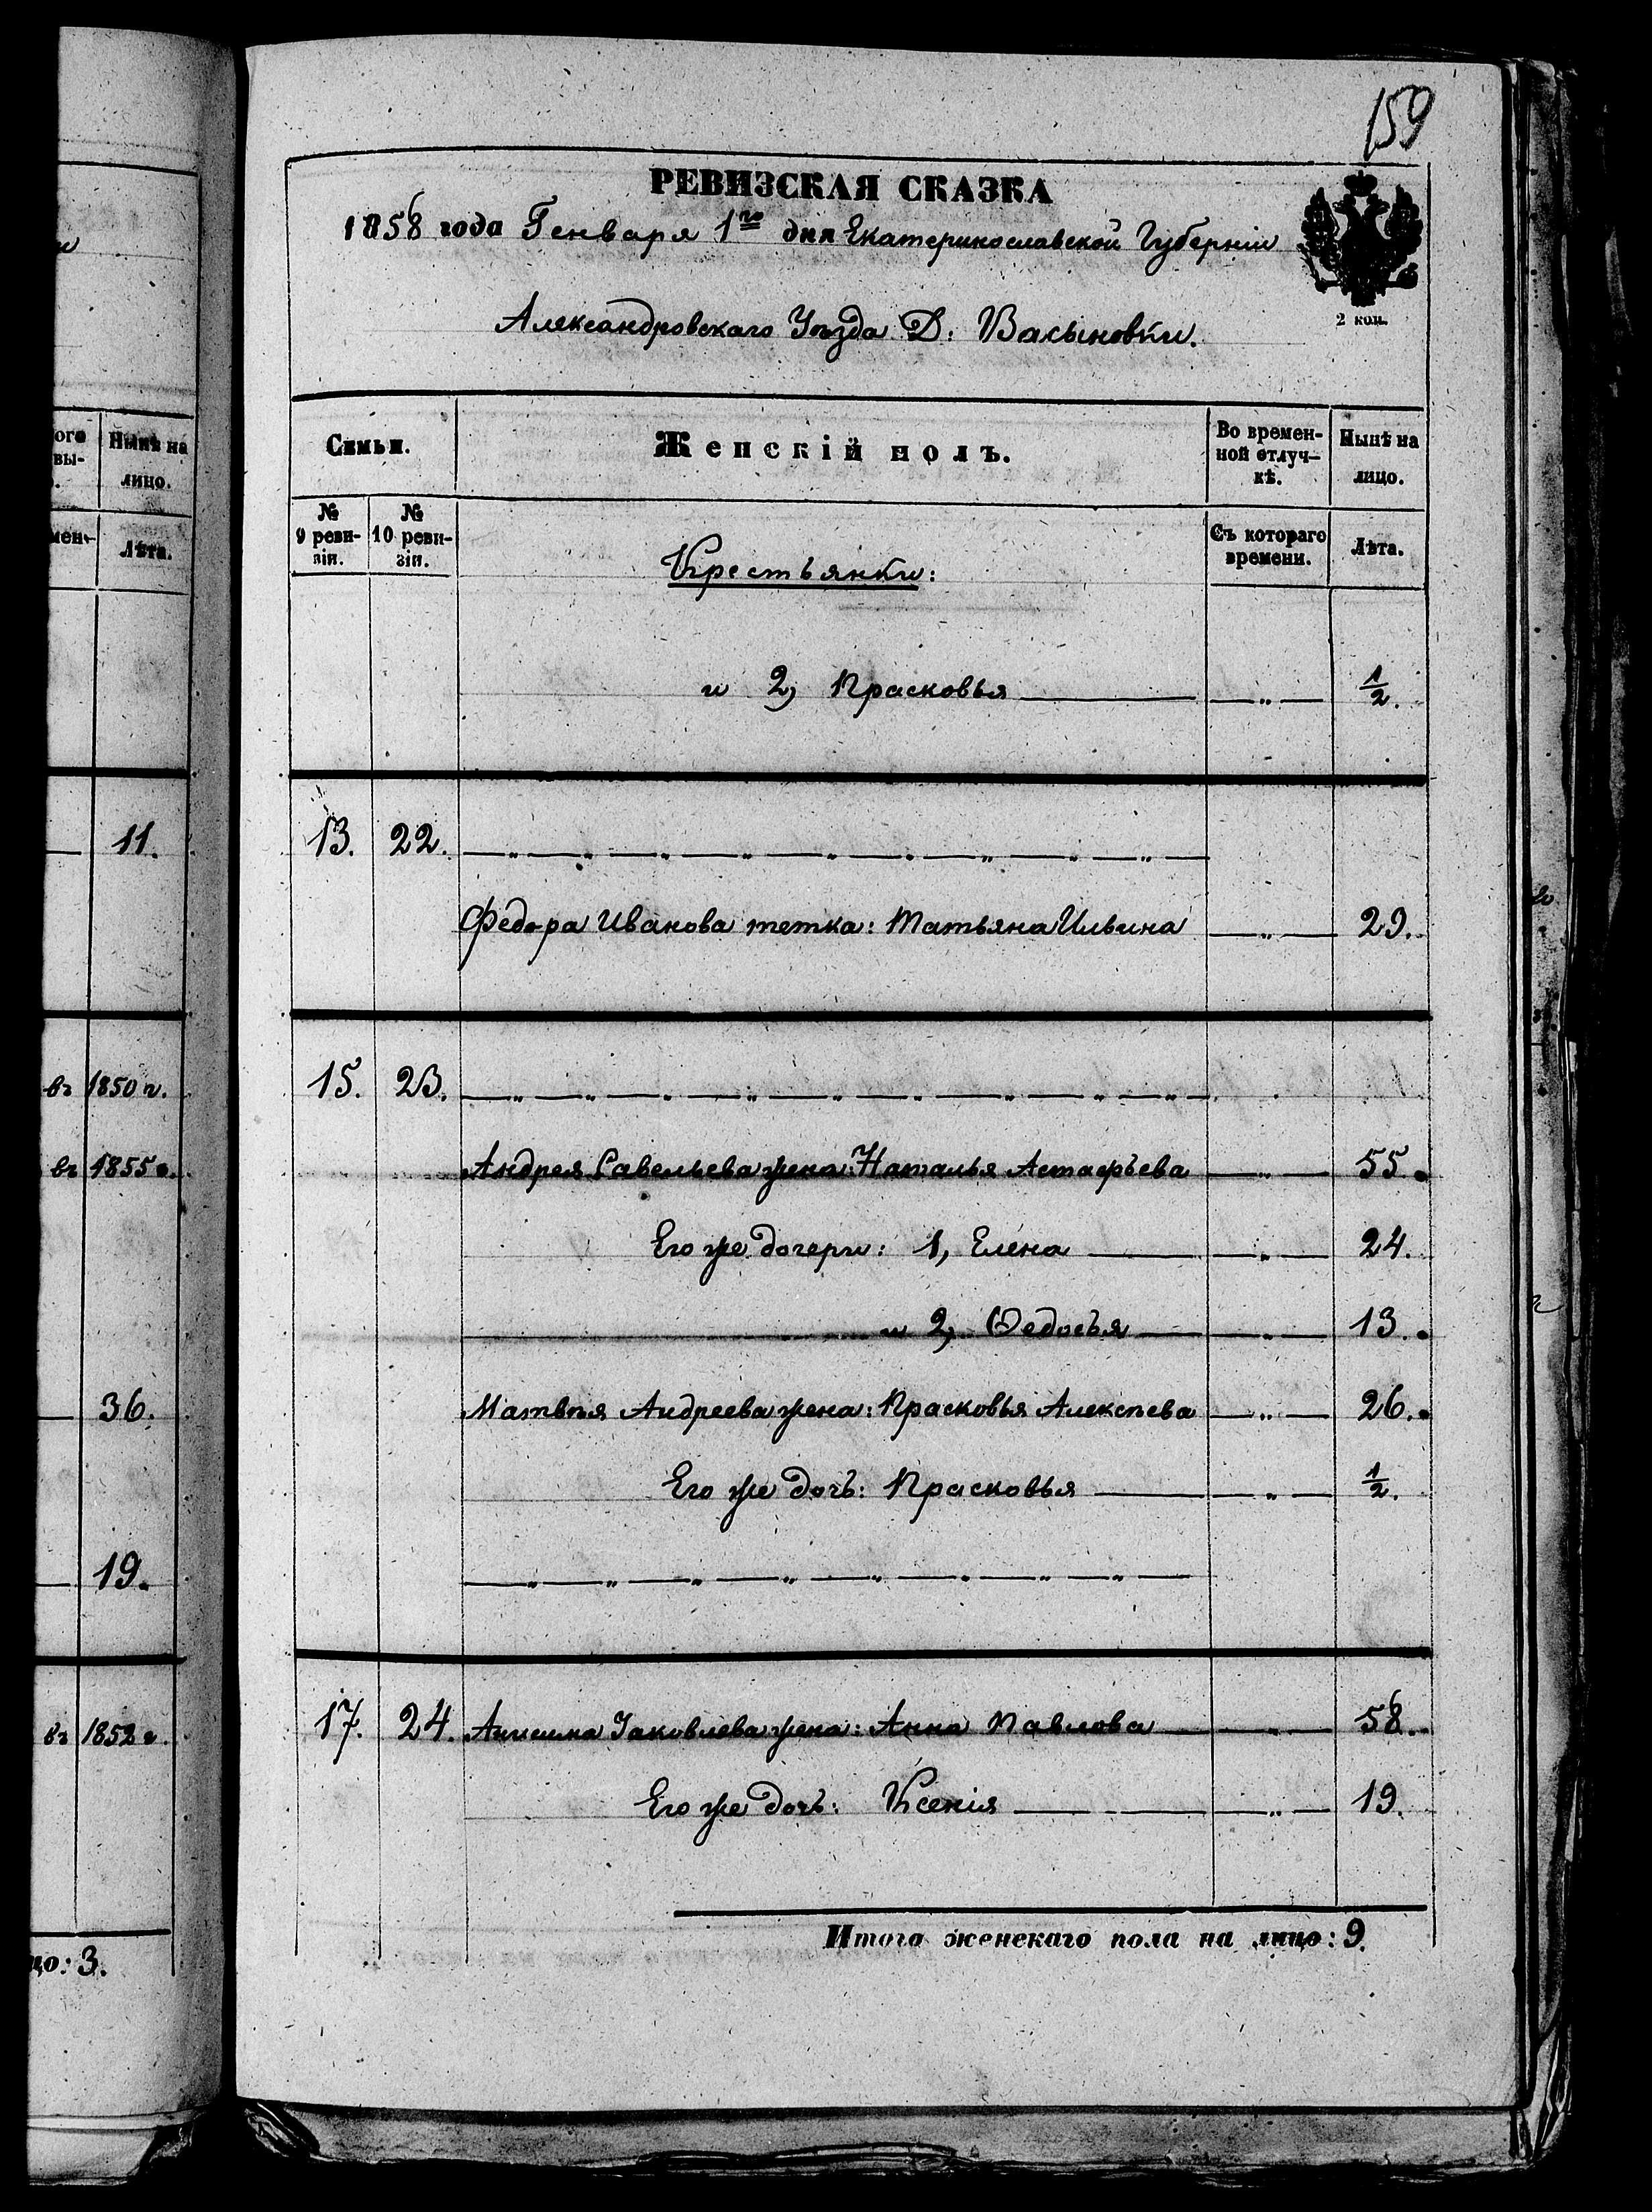 159
РЕВИЗСКАЯ СКАЗКА
1858 года Генваря 1го дня Екатеринославской Губерніи
Александровскаго Уѣзда Д: Васыновки.
2 коп.
Семьи.
Женскій полъ.
Во времен-
ной отлуч-
кѣ.
Нынѣ на
лицо.
№
9 реви-
зіи.
№
10 реви-
зіи.
Съ котораго
времени.
Лѣта.
Крестьянки:
и 2, Прасковья — „ — 1/2.
13. 22. — „ — „ — „ — „ — „ — „ — „ — „ — „
Федора Иванова тетка: Татьяна Ильина — „ — 29.
15. 23. — „ — „ — „ — „ — „ — „ — „ — „ — „
Андрея Савельева жена: Наталья Астафьева — „ — 55.
Его же дочери: 1, Елена — „ — 24.
и 2, Ѳедосья — „ — 13.
Матвѣя Андреева жена: Прасковья Алексѣева — „ — 26.
Его же дочь: Прасковья — „ — 1/2.
— „ — „ — „ — „ — „ — „ — „ — „
17. 24. Яковлева жена: Анна Павлова — „ — 58.
Его же дочь: Ксенія — „ — 19.
Итого женскаго пола на лицо: 9.
Нынѣ на
лицо.
Лѣта.
11.
въ 1850 г.
въ 1855 г.
36.
19.
въ 1852 г.
цо: 3.